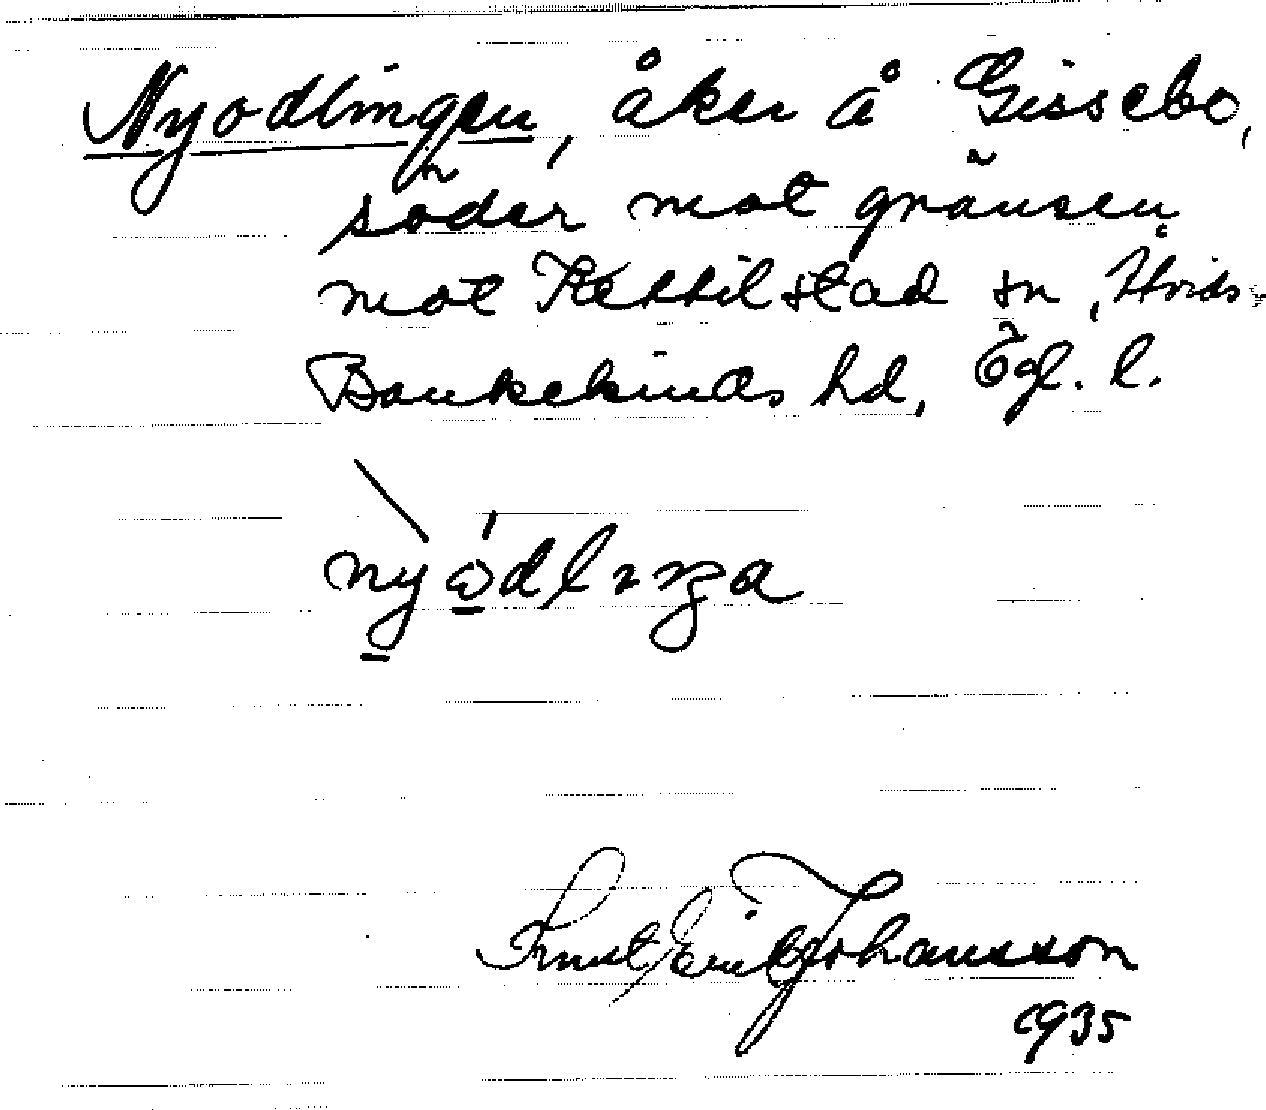 Nyodlingen, åker å Gissebo,
söder mot gränsen
mot Kettilstad sn, Hvids-
Bankekinds hd, Ögl. l.
Knut Erik Johansson
1935